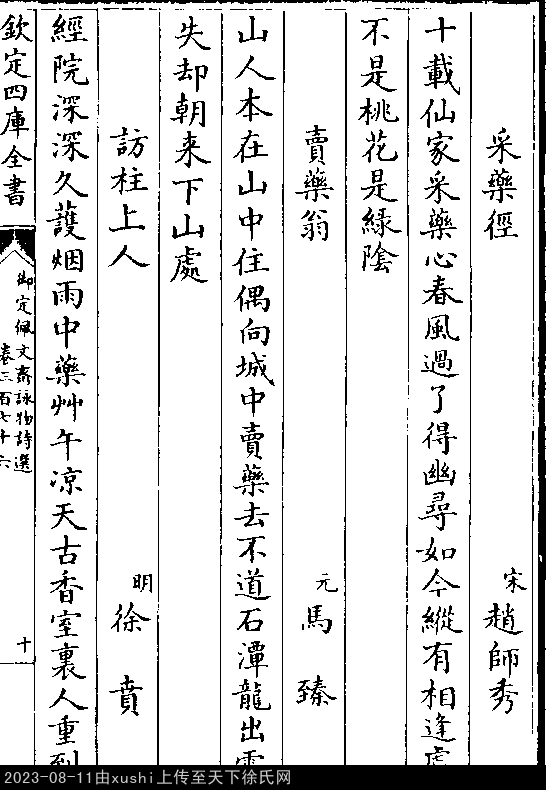 采藥徑
宋趙師秀
十載仙家采藥心春風過了得幽尋如今縱有相逢處
不是桃花是緑陰
賣藥翁
元馬臻
山人本在山中住偶向城中賣藥去不道石潭龍出雲
失却朝来下山處
訪柱上人
明徐賁
經院深深久護烟雨中藥艸午凉天古香室裏人重到
欽定四庫全書
御定佩文齋詠物詩選
卷三百七十六
十
2023-08-11由xushi上传至天下徐氏网